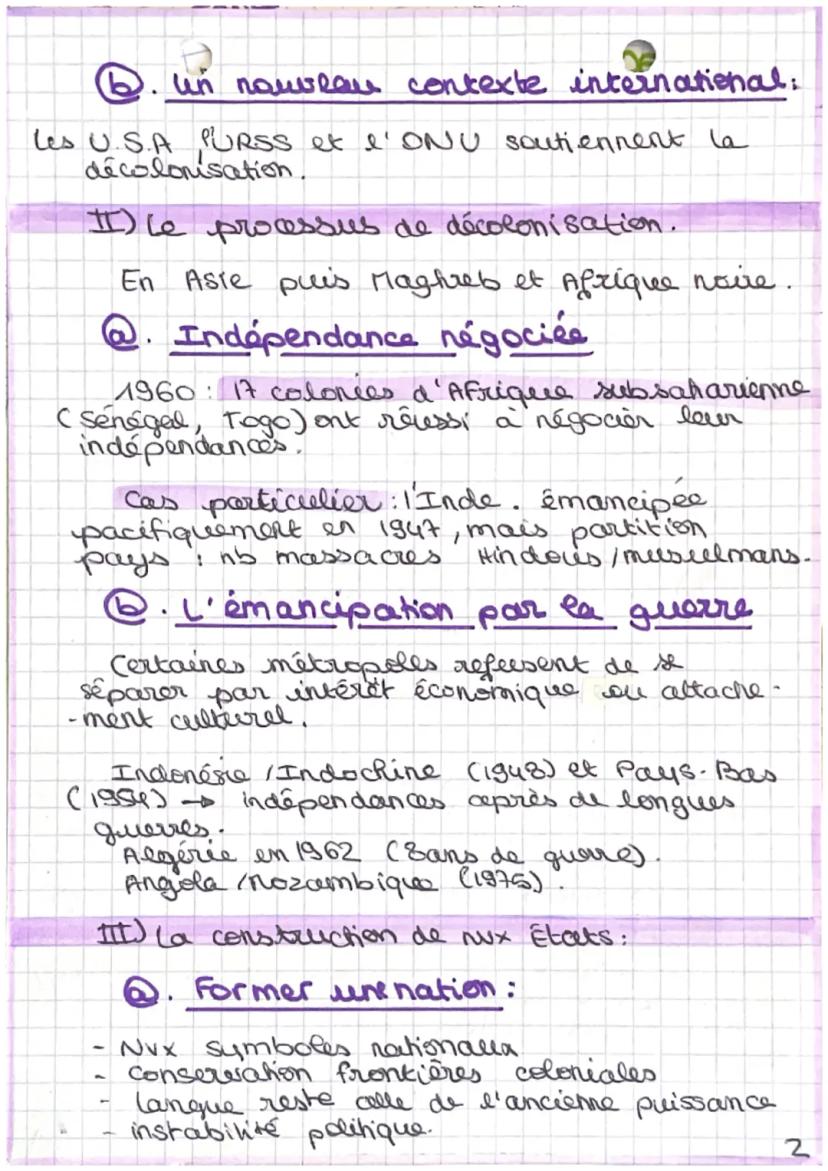 b. Un nouveau contexte international:
Les U.S.A l'URSS et l'ONU soutiennent la
décolonisation.
II) Le processus de décolonisation.
En Asie puis Maghreb et Afrique noire.
a. Indépendance négociée
1960: 17 colonies d'Afrique subsaharienne
(Sénégal, Togo) ont réussi à négocier leur
indépendances.
Cas particulier: l'Inde. émancipée
pacifiquement en 1947, mais partition
pays: nb massacres Hindous/musulmans.
b. L'émancipation par la guerre
Certaines métropoles refusent de se
séparer par intérêt économique ou attache-
-ment culturel.
Indonésie/Indochine (1948) et Pays-Bas
(1954) → indépendances après de longues
guerres.
Algérie en 1962 (8ans de guerre).
Angola/Mozambique (1975).
III) La construction de nvx États:
a. Former une nation:
- Nvx symboles nationaux
- conservation frontières coloniales
- langue reste celle de l'ancienne puissance
- instabilité politique.
2